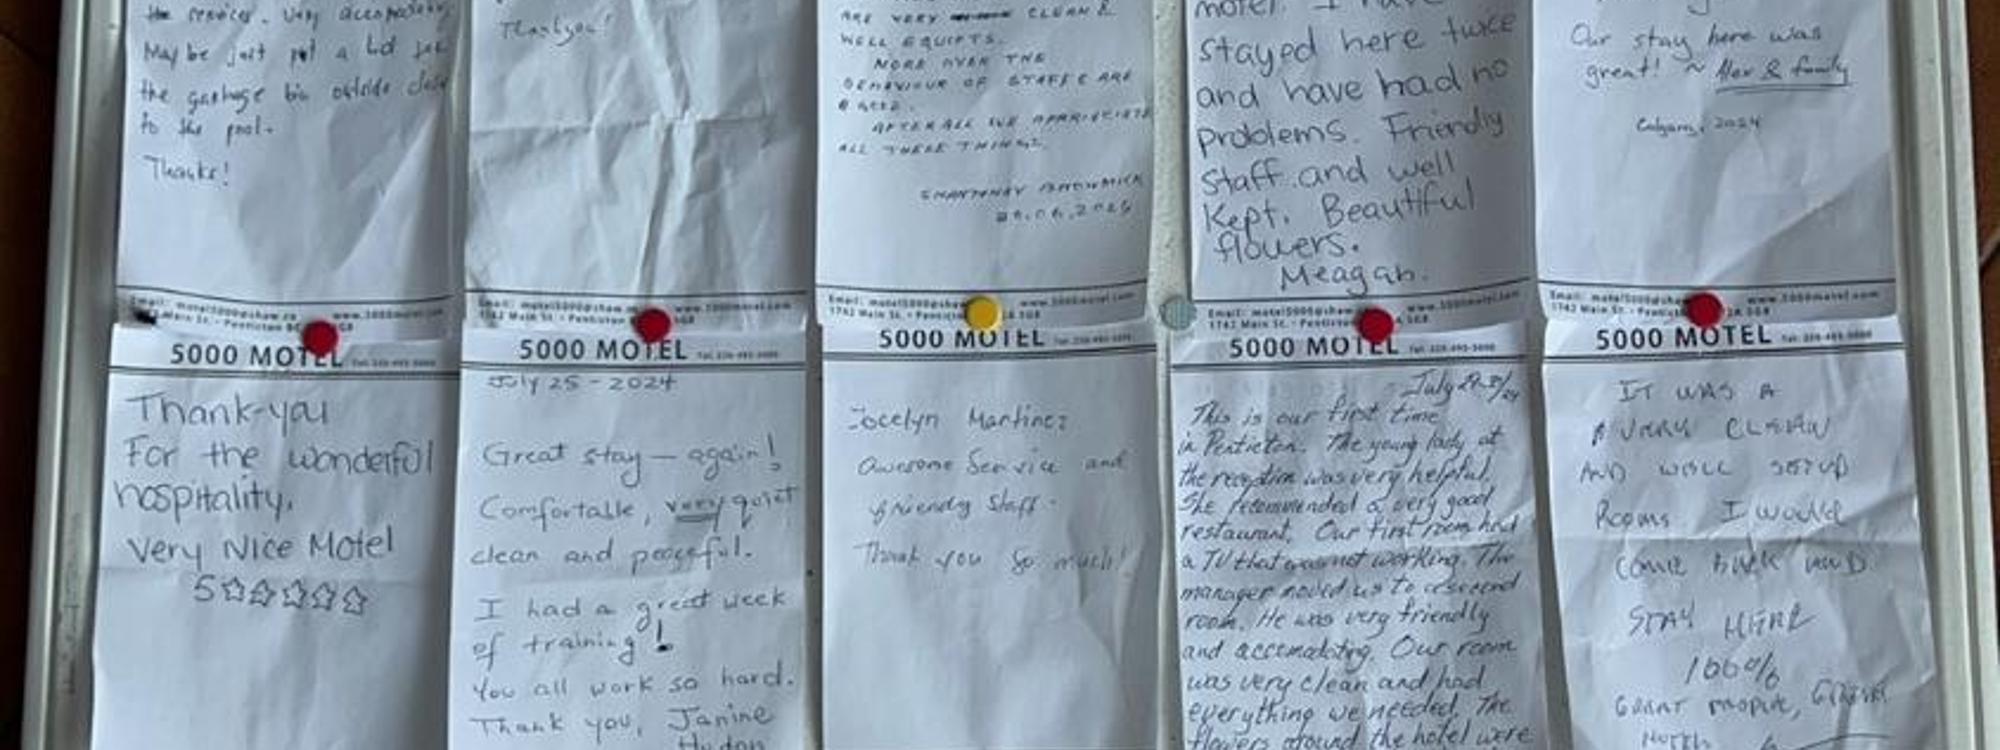 the services. Very accomodating
Maybe just put a lid for
the garbage bin outside close
to the pool.
Thanks!
Email: motel5000@shaw.ca www.5000motel.com
Main St. - Penticton BC
Thankyou!
Email: motel5000@shaw www.5000motel.com
1742 Main St. - Penticton 5G8
ARE VERY CLEAN &
WELL EQUIPTS.
MORE OVER THE
BEHAVIOUR OF STAFFS ARE
GOOD.
AFTER ALL WE
ALL THESE THINGS.
Email: motel5000@shaw www.5000motel.com
1742 Main St. - Penticton 5G8
motel. I have
stayed here twice
and have had no
problems. Friendly
staff and well
Kept. Beautiful
flowers.
Meagan.
Email: motel5000@shaw www.5000motel.com
1742 Main St. - Penticton 5G8
Our stay here was
great! ~ Alex & family
Calgary, 2024
Email: motel5000@shaw www.5000motel.com
1742 Main St. - Penticton 2A 5G8
5000 MOTEL
Thank-you
For the wonderful
hospitality.
Very Nice Motel
5☆☆☆☆☆
5000 MOTEL
July 25 - 2024
Great stay — again!
Comfortable, very quiet
clean and peaceful.
I had a great week
of training!
You all work so hard.
Thank you, Janine
5000 MOTEL
Jocelyn Martinez
Awesome Service and
friendly Staff.
Thank you so much!
5000 MOTEL
July
This is our first time
in Penticton. The young lady at
the reception was very helpful.
She recommended a very good
restaurant. Our first room had
a TV that was not working. The
manager moved us to a second
room. He was very friendly
and accomodating. Our room
was very clean and had
everything we needed. The
flowers around the hotel were
5000 MOTEL
IT WAS A
VERY CLEAN
AND WELL SETUP
ROOMS I would
COME BACK AND
STAY HERE
100%
GREAT PEOPLE, GREAT